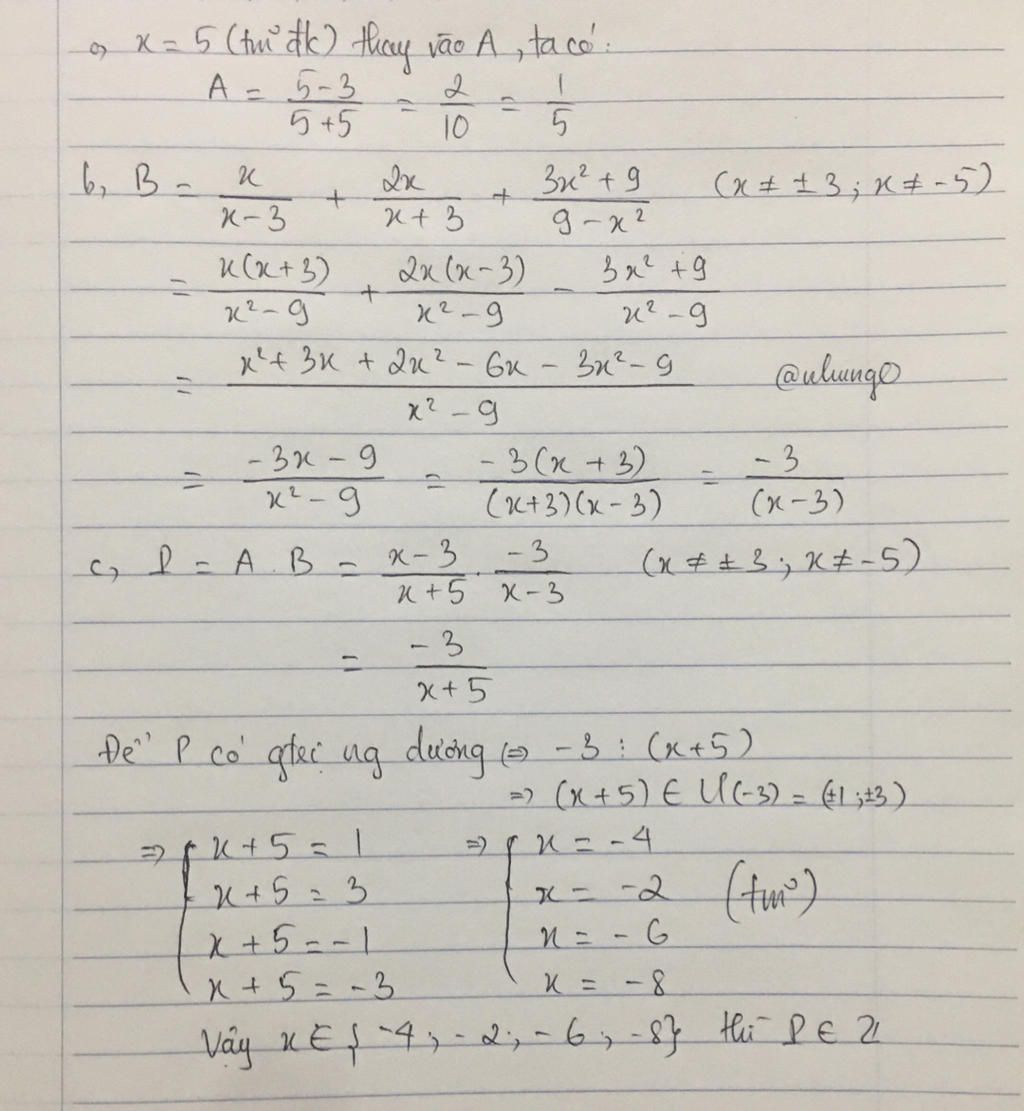 a, x = 5 (tm² đk) thay vào A, ta có:
A = (5-3)/(5+5) = 2/10 = 1/5
b, B = x/(x-3) + 2x/(x+3) + (3x²+9)/(9-x²) (x ≠ ±3; x ≠ -5)
= x(x+3)/(x²-9) + 2x(x-3)/(x²-9) - (3x²+9)/(x²-9)
= (x²+3x+2x²-6x-3x²-9)/(x²-9)
= (-3x-9)/(x²-9) = -3(x+3)/((x+3)(x-3)) = -3/(x-3)
c, P = A . B = (x-3)/(x+5) . -3/(x-3) (x ≠ ±3; x ≠ -5)
= -3/(x+5)
Để P có gtrị ng dương (=) -3 : (x+5)
=) (x+5) ∈ Ư(-3) = (±1;±3)
=) { x+5 = 1 =) { x = -4
x+5 = 3 x = -2 (tm²)
x+5 = -1 x = -6
x+5 = -3 x = -8
Vậy x ∈ {-4; -2; -6; -8} thì P ∈ Z